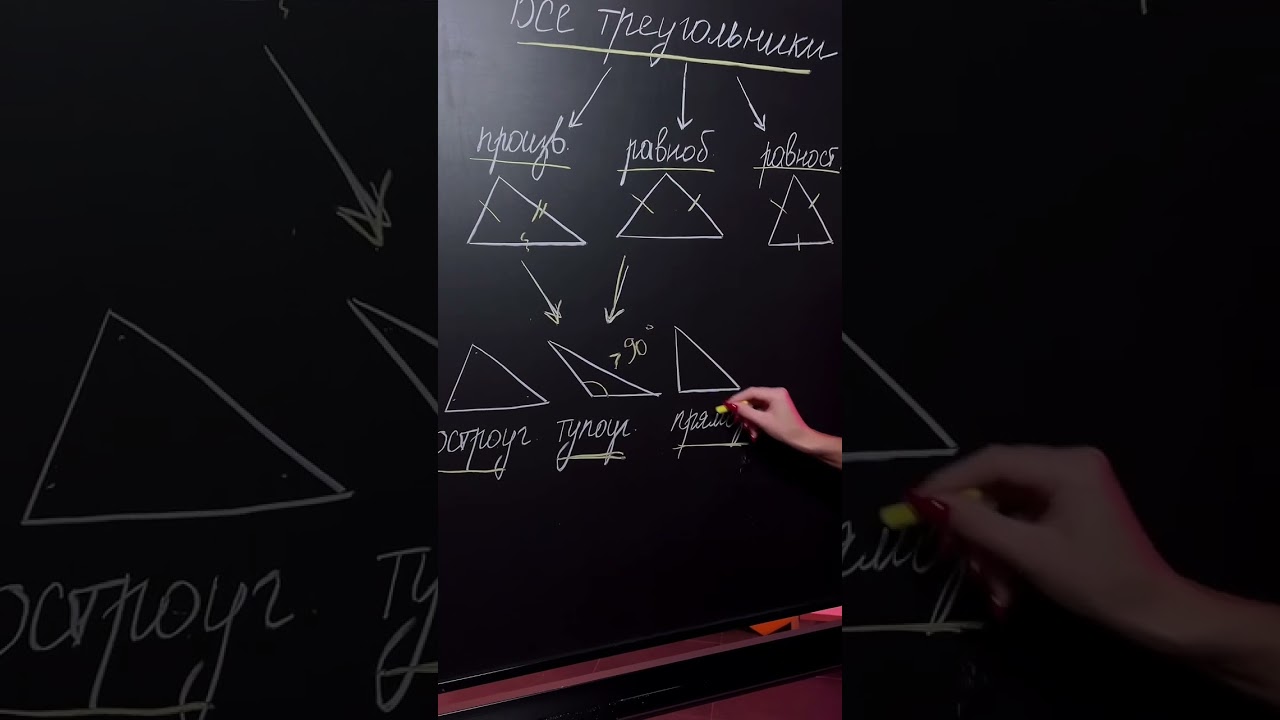 Все треугольники
произв. равноб. равност.
>90°
остроуг. тупоуг.